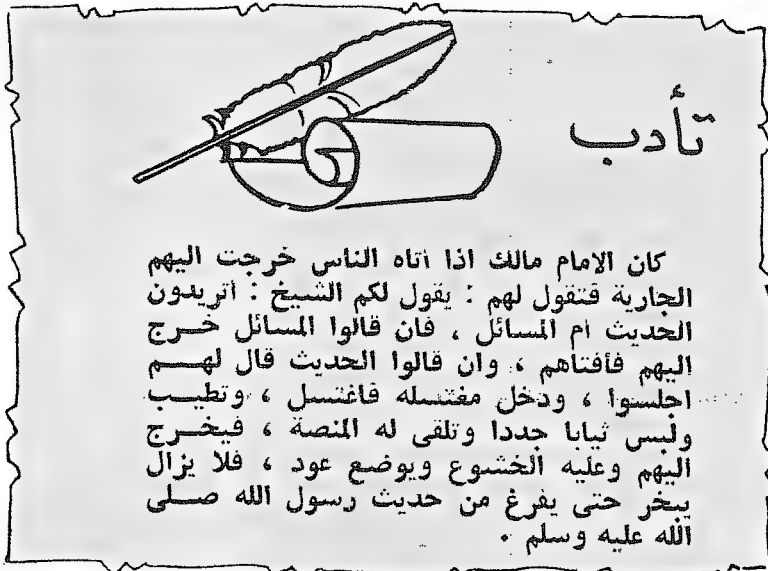 تأدب
كان الامام مالك اذا أتاه الناس خرجت اليهم
الجارية فتقول لهم : يقول لكم الشيخ : أتريدون
الحديث أم المسائل ، فان قالوا المسائل خـرج
اليهم فأفتاهم ، وان قالوا الحديث قال لهـــم
اجلسوا ، ودخل مغتسله فاغتسل ، وتطيـــب
ولبس ثيابا جددا وتلقى له المنصة ، فيخـــرج
اليهم وعليه الخشوع ويوضع عود ، فلا يزال
يبخر حتى يفرغ من حديث رسول الله صــلى
الله عليه وسلم .